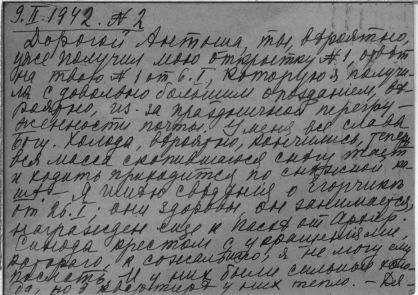 9.II.1942. № 2
Дорогой Антоша, ты, вероятно,
уже получил мою открытку № 1, ответ
на твою № 1 от 6.I, которую я получи-
ла с довольно большим опозданием, ве-
роятно, из-за праздничной перегру-
женности почты. У меня всё слава
Богу. Холода, вероятно, кончились, теперь
вся масса скопившегося снегу тает
и ходить приходится по снежной ка-
ше. — Я имею сведения о Егорчике
от 25.I, они здоровы, он занимается,
награжден еще к Пасхе от Архиер.
Синода крестом с украшениями,
которого, к сожалению, я не могу ему
послать. И у них были сильные холо-
да, но в квартире у них тепло. — Дя-